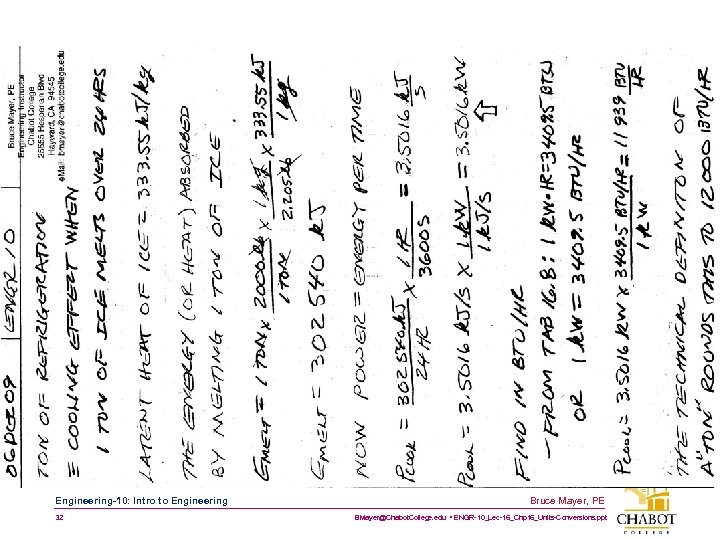 06DEC09 ENGR 10
Bruce Mayer, PE
Engineering Instructor
Chabot College
25555 Hesperian Blvd
Hayward, CA 94545
eMail: bmayer@chabotcollege.edu
TON OF REFRIGERATION
≡ COOLING EFFECT WHEN
1 TON OF ICE MELTS OVER 24 HRS
LATENT HEAT OF ICE = 333.55 kJ/kg
THE ENERGY (OR HEAT) ABSORBED
BY MELTING 1 TON OF ICE.
EMELT = 1 TON x 2000 lb / 1 TON x 1 kg / 2.205 lb x 333.55 kJ / 1 kg
EMELT = 302540 kJ
NOW POWER = ENERGY PER TIME
PCOOL = 302540 kJ / 24 HR x 1 HR / 3600 S = 3.5016 kJ / S
PCOOL = 3.5016 kJ/S x 1 kW / 1 kJ/S = 3.5016 kW
FIND IN BTU/HR
- FROM TAB 16.8: 1 kW•HR = 3409.5 BTU
OR 1 kW = 3409.5 BTU/HR
PCOOL = 3.5016 kW x 3409.5 BTU/HR / 1 kW = 11939 BTU / HR
THE TECHNICAL DEFINITON OF
A "TON" ROUNDS THIS TO 12000 BTU/HR
Engineering-10: Intro to Engineering
32
Bruce Mayer, PE
BMayer@Chabot.College.edu • ENGR-10_Lec-16_Chp16_Units-Conversions.ppt
CHABOT
COLLEGE